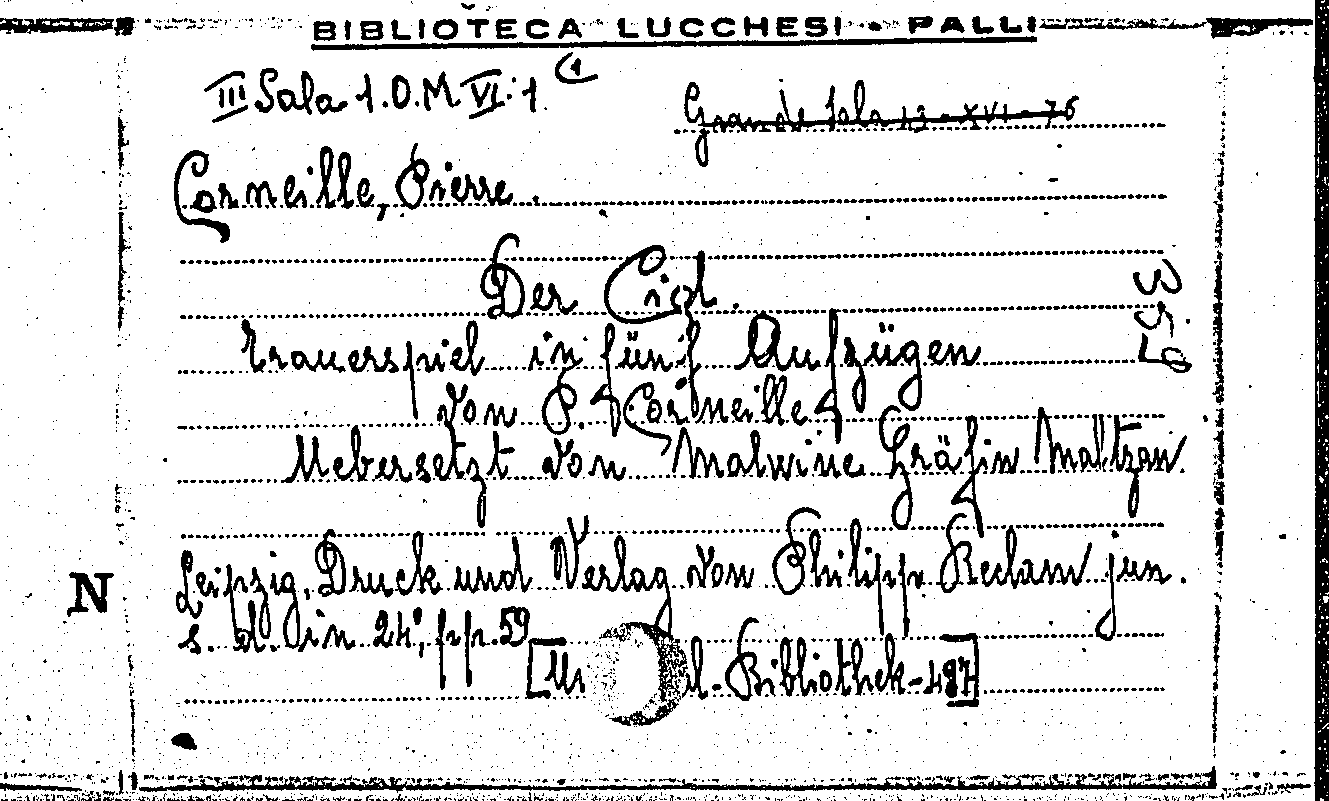 BIBLIOTECA LUCCHESI - PALLI
III Sala 1.O.M VI. 1 (1
Grande Sala 13-XVI-76
Corneille, Pierre.
Der Cid.
Trauerspiel in fünf Aufzügen
von P. Corneille
Uebersetzt von Malwine Gräfin Maltzan
Leipzig, Druck und Verlag von Philipp Reclam jun.
N
s. d. in 24°, pp. 59
[Un l-Bibliothek-487]